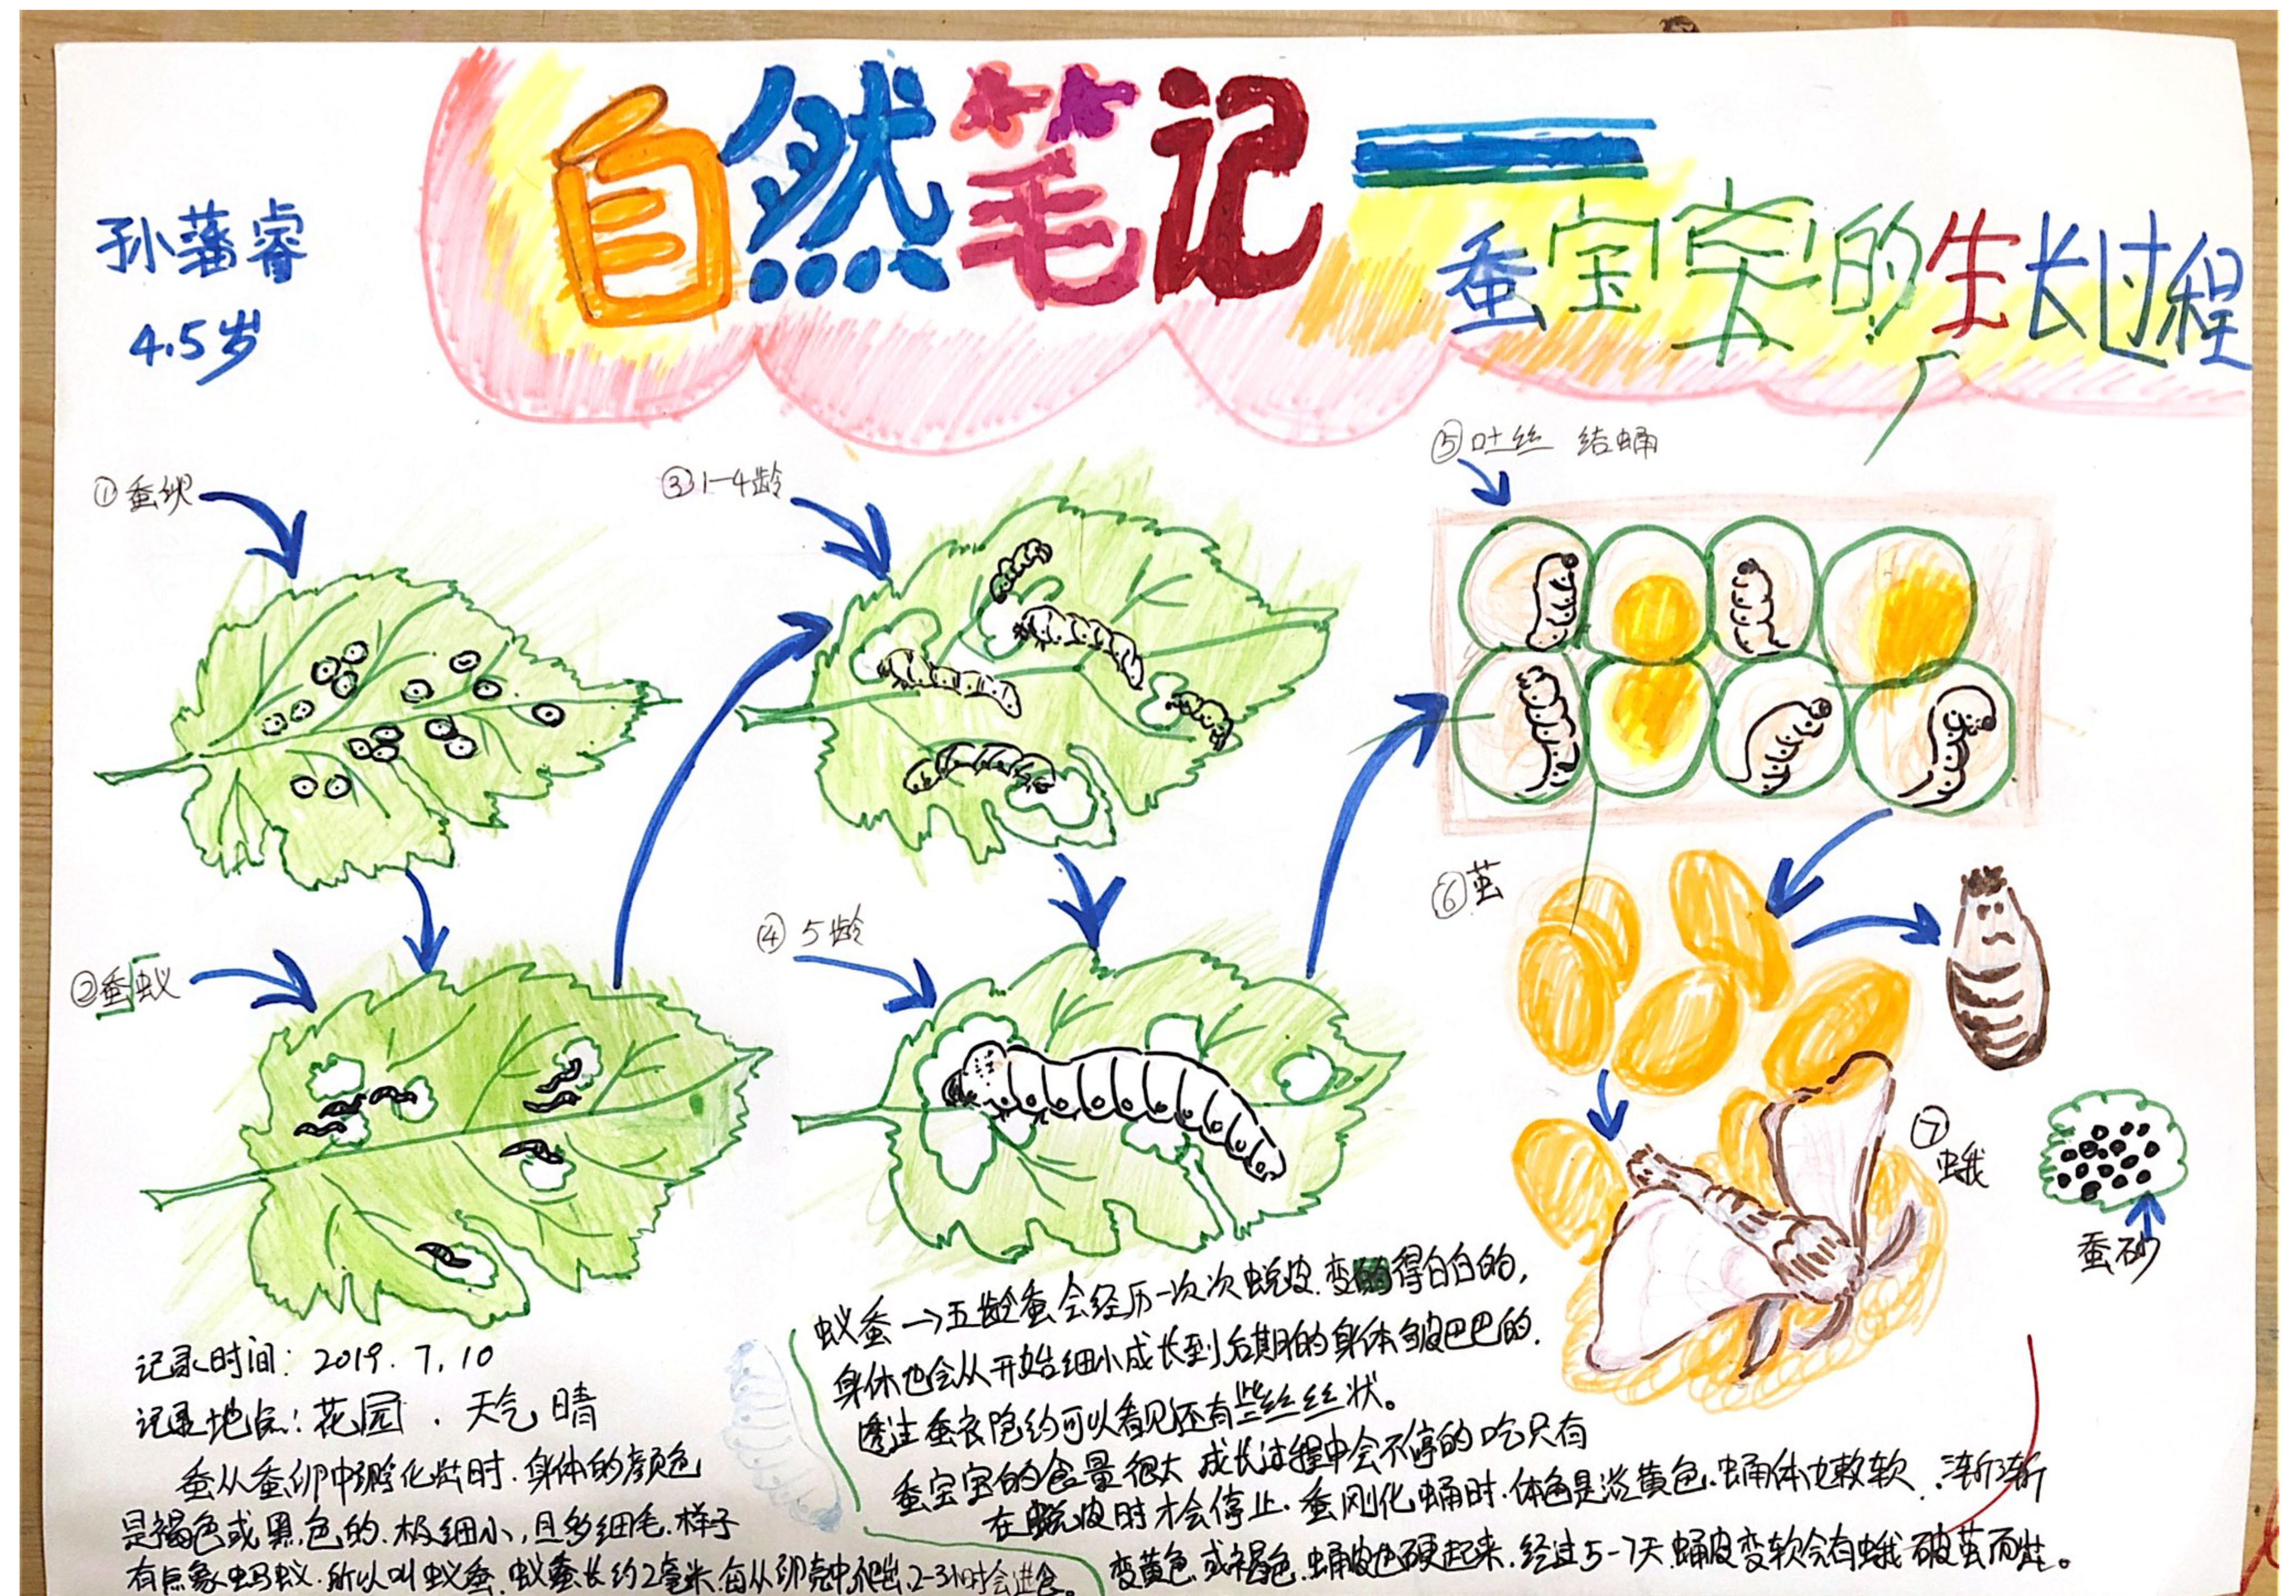 自然笔记——
蚕宝宝的生长过程
孙藩睿
4.5岁
①蚕
②蚕蚁
③1-4龄
④5龄
⑤吐丝 结蛹
⑥茧
⑦
蛾
蚕砂
记录时间：2019.7.10
记录地点：花园.天气晴
蚕从蚕卵中孵化出时.身体的颜色
是褐色或黑色的.极细小,且多细毛.样子
有点象蚂蚁.所以叫蚁蚕.蚁蚕长约2毫米.自从卵壳中爬出.2-3小时会进食。
蚁蚕→五龄蚕会经历一次次蜕皮.变得白白的,
身体也会从开始细小成长到后期的身体皱巴巴的.
透过蚕衣隐约可以看见还有些丝丝状。
蚕宝宝的食量很大 成长过程中会不停的吃只有
在蜕皮时才会停止.蚕刚化蛹时.体色是淡黄色.蛹体也软软.渐渐
变黄色或褐色.蛹皮也硬起来.经过5-7天.蛹皮变软会有蛾破茧而出。